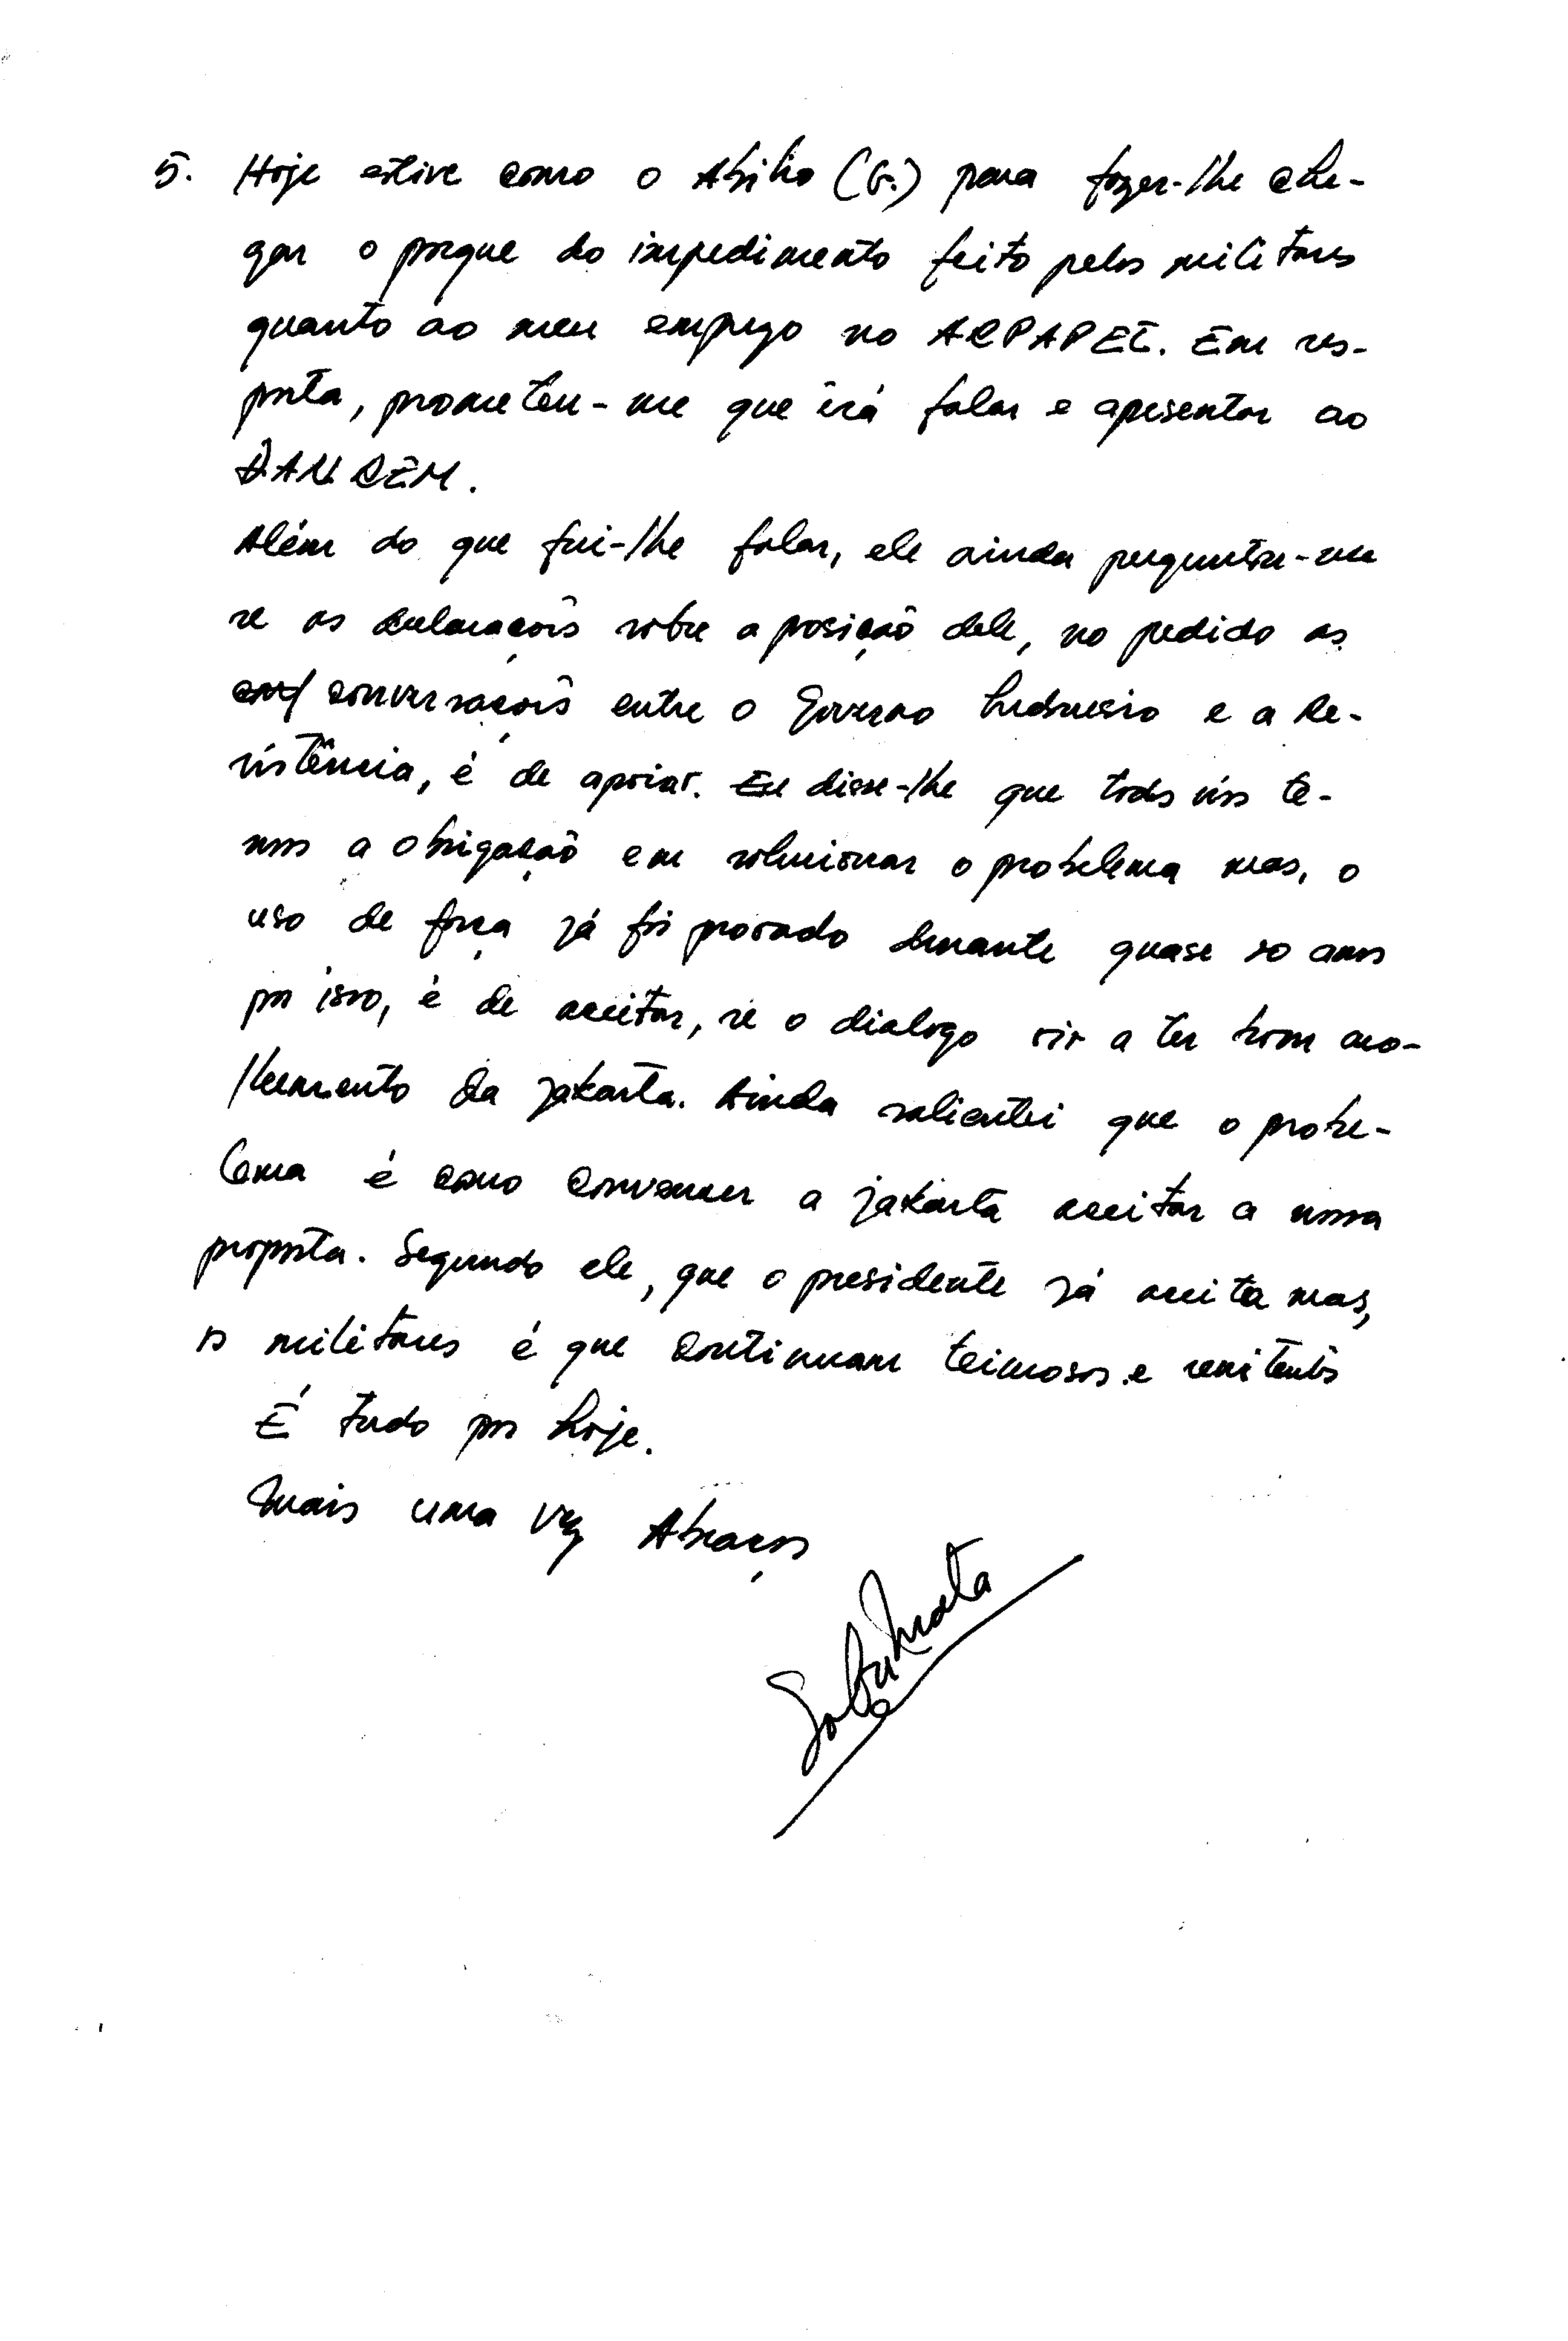 5. Hoje estive como o Abilio (G.) para fazer-lhe che-
gar o porque do impedimento feito pelos militares
quanto ao meu emprego no ARPAPET. Em res-
posta, prometeu-me que irá falar e apresentar ao
DANREM.
Além do que fui-lhe falar, ele ainda perguntou-me
se as declarações sobre a posição dele, no pedido as
conversações entre o Governo Indonesio e a Re-
sistência, é de apoiar. Eu disse-lhe que todos nós te-
mos a obrigação em solucionar o probelema mas, o
uso de força já foi provado durante quase 20 anos
por isso, é de aceitar, se o dialogo vir a ter bom aco-
lhemento da Jakarta. Ainda salientei que o probe-
lema é como convencer a Jakarta aceitar a nossa
proposta. Segundo ele, que o presidente já aceita mas,
os militares é que continuam teimosos e renitentes
É tudo por hoje.
Mais uma vez Abraços